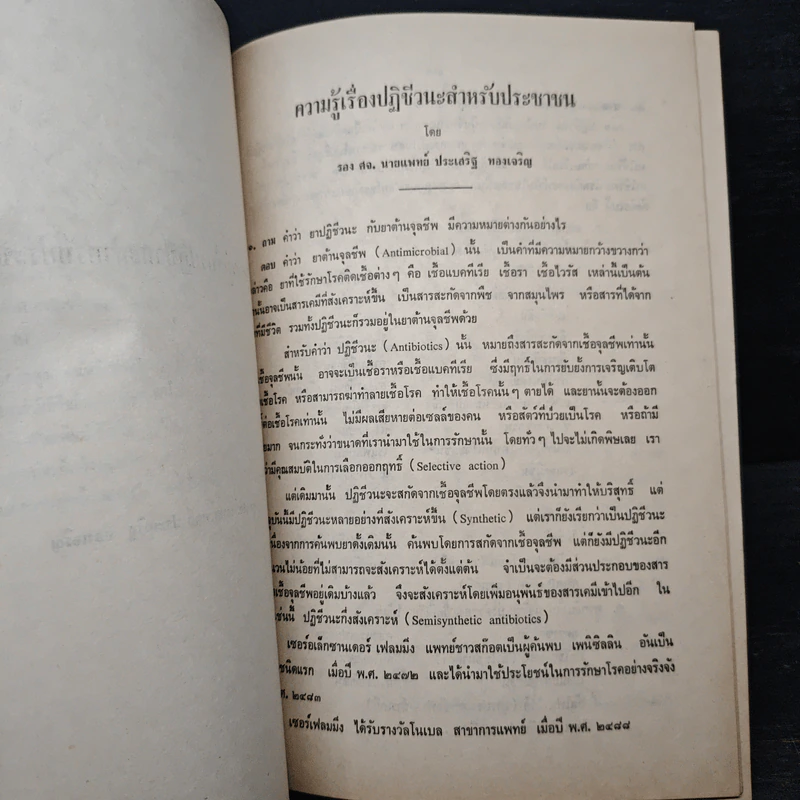 ความรู้เรื่องปฏิชีวนะสำหรับประชาชน
โดย
รอง ศจ. นายแพทย์ ประเสริฐ ทองเจริญ
๑. ถาม คำว่า ยาปฏิชีวนะ กับยาต้านจุลชีพ มีความหมายต่างกันอย่างไร
ตอบ คำว่า ยาต้านจุลชีพ (Antimicrobial) นั้น เป็นคำที่มีความหมายกว้างขวางกว่า
ล่าวคือ ยาที่ใช้รักษาโรคติดเชื้อต่างๆ คือ เชื้อแบคทีเรีย เชื้อรา เชื้อไวรัส เหล่านี้เป็นต้น
านั้นอาจเป็นสารเคมีที่สังเคราะห์ขึ้น เป็นสารสะกัดจากพืช จากสมุนไพร หรือสารที่ได้จาก
ที่มีชีวิต รวมทั้งปฏิชีวนะก็รวมอยู่ในยาต้านจุลชีพด้วย
สำหรับคำว่า ปฏิชีวนะ (Antibiotics) นั้น หมายถึงสารสะกัดจากเชื้อจุลชีพเท่านั้น
เชื้อจุลชีพนั้น อาจจะเป็นเชื้อราหรือเชื้อแบคทีเรีย ซึ่งมีฤทธิ์ในการยับยั้งการเจริญเติบโต
เชื้อโรค หรือสามารถฆ่าทำลายเชื้อโรค ทำให้เชื้อโรคนั้นๆ ตายได้ และยานั้นจะต้องออก
ต่อเชื้อโรคเท่านั้น ไม่มีผลเสียหายต่อเซลล์ของคน หรือสัตว์ที่ป่วยเป็นโรค หรือถ้ามี
ยมาก จนกระทั่งว่าขนาดที่เรานำมาใช้ในการรักษานั้น โดยทั่วๆ ไปจะไม่เกิดพิษเลย เรา
ว่ามีคุณสมบัติในการเลือกออกฤทธิ์ (Selective action)
แต่เดิมมานั้น ปฏิชีวนะจะสกัดจากเชื้อจุลชีพโดยตรงแล้วจึงนำมาทำให้บริสุทธิ์ แต่
จุบันนี้มีปฏิชีวนะหลายอย่างที่สังเคราะห์ขึ้น (Synthetic) แต่เราก็ยังเรียกว่าเป็นปฏิชีวนะ
นื่องจากการค้นพบยาดั้งเดิมนั้น ค้นพบโดยการสกัดจากเชื้อจุลชีพ แต่ก็ยังมีปฏิชีวนะอีก
นวนไม่น้อยที่ไม่สามารถจะสังเคราะห์ได้ตั้งแต่ต้น จำเป็นจะต้องมีส่วนประกอบของสาร
เชื้อจุลชีพอยู่เดิมบ้างแล้ว จึงจะสังเคราะห์โดยเพิ่มอนุพันธ์ของสารเคมีเข้าไปอีก ใน
ช่นนี้ ปฏิชีวนะกึ่งสังเคราะห์ (Semisynthetic antibiotics)
เซอร์อเล็กซานเดอร์ เฟลมมิ่ง แพทย์ชาวสก๊อตเป็นผู้ค้นพบ เพนิซิลลิน อันเป็น
ชนิดแรก เมื่อปี พ.ศ. ๒๔๗๒ และได้นำมาใช้ประโยชน์ในการรักษาโรคอย่างจริงจัง
ศ. ๒๔๘๓
เซอร์เฟลมมิ่ง ได้รับรางวัลโนเบล สาขาการแพทย์ เมื่อปี พ.ศ. ๒๔๘๘